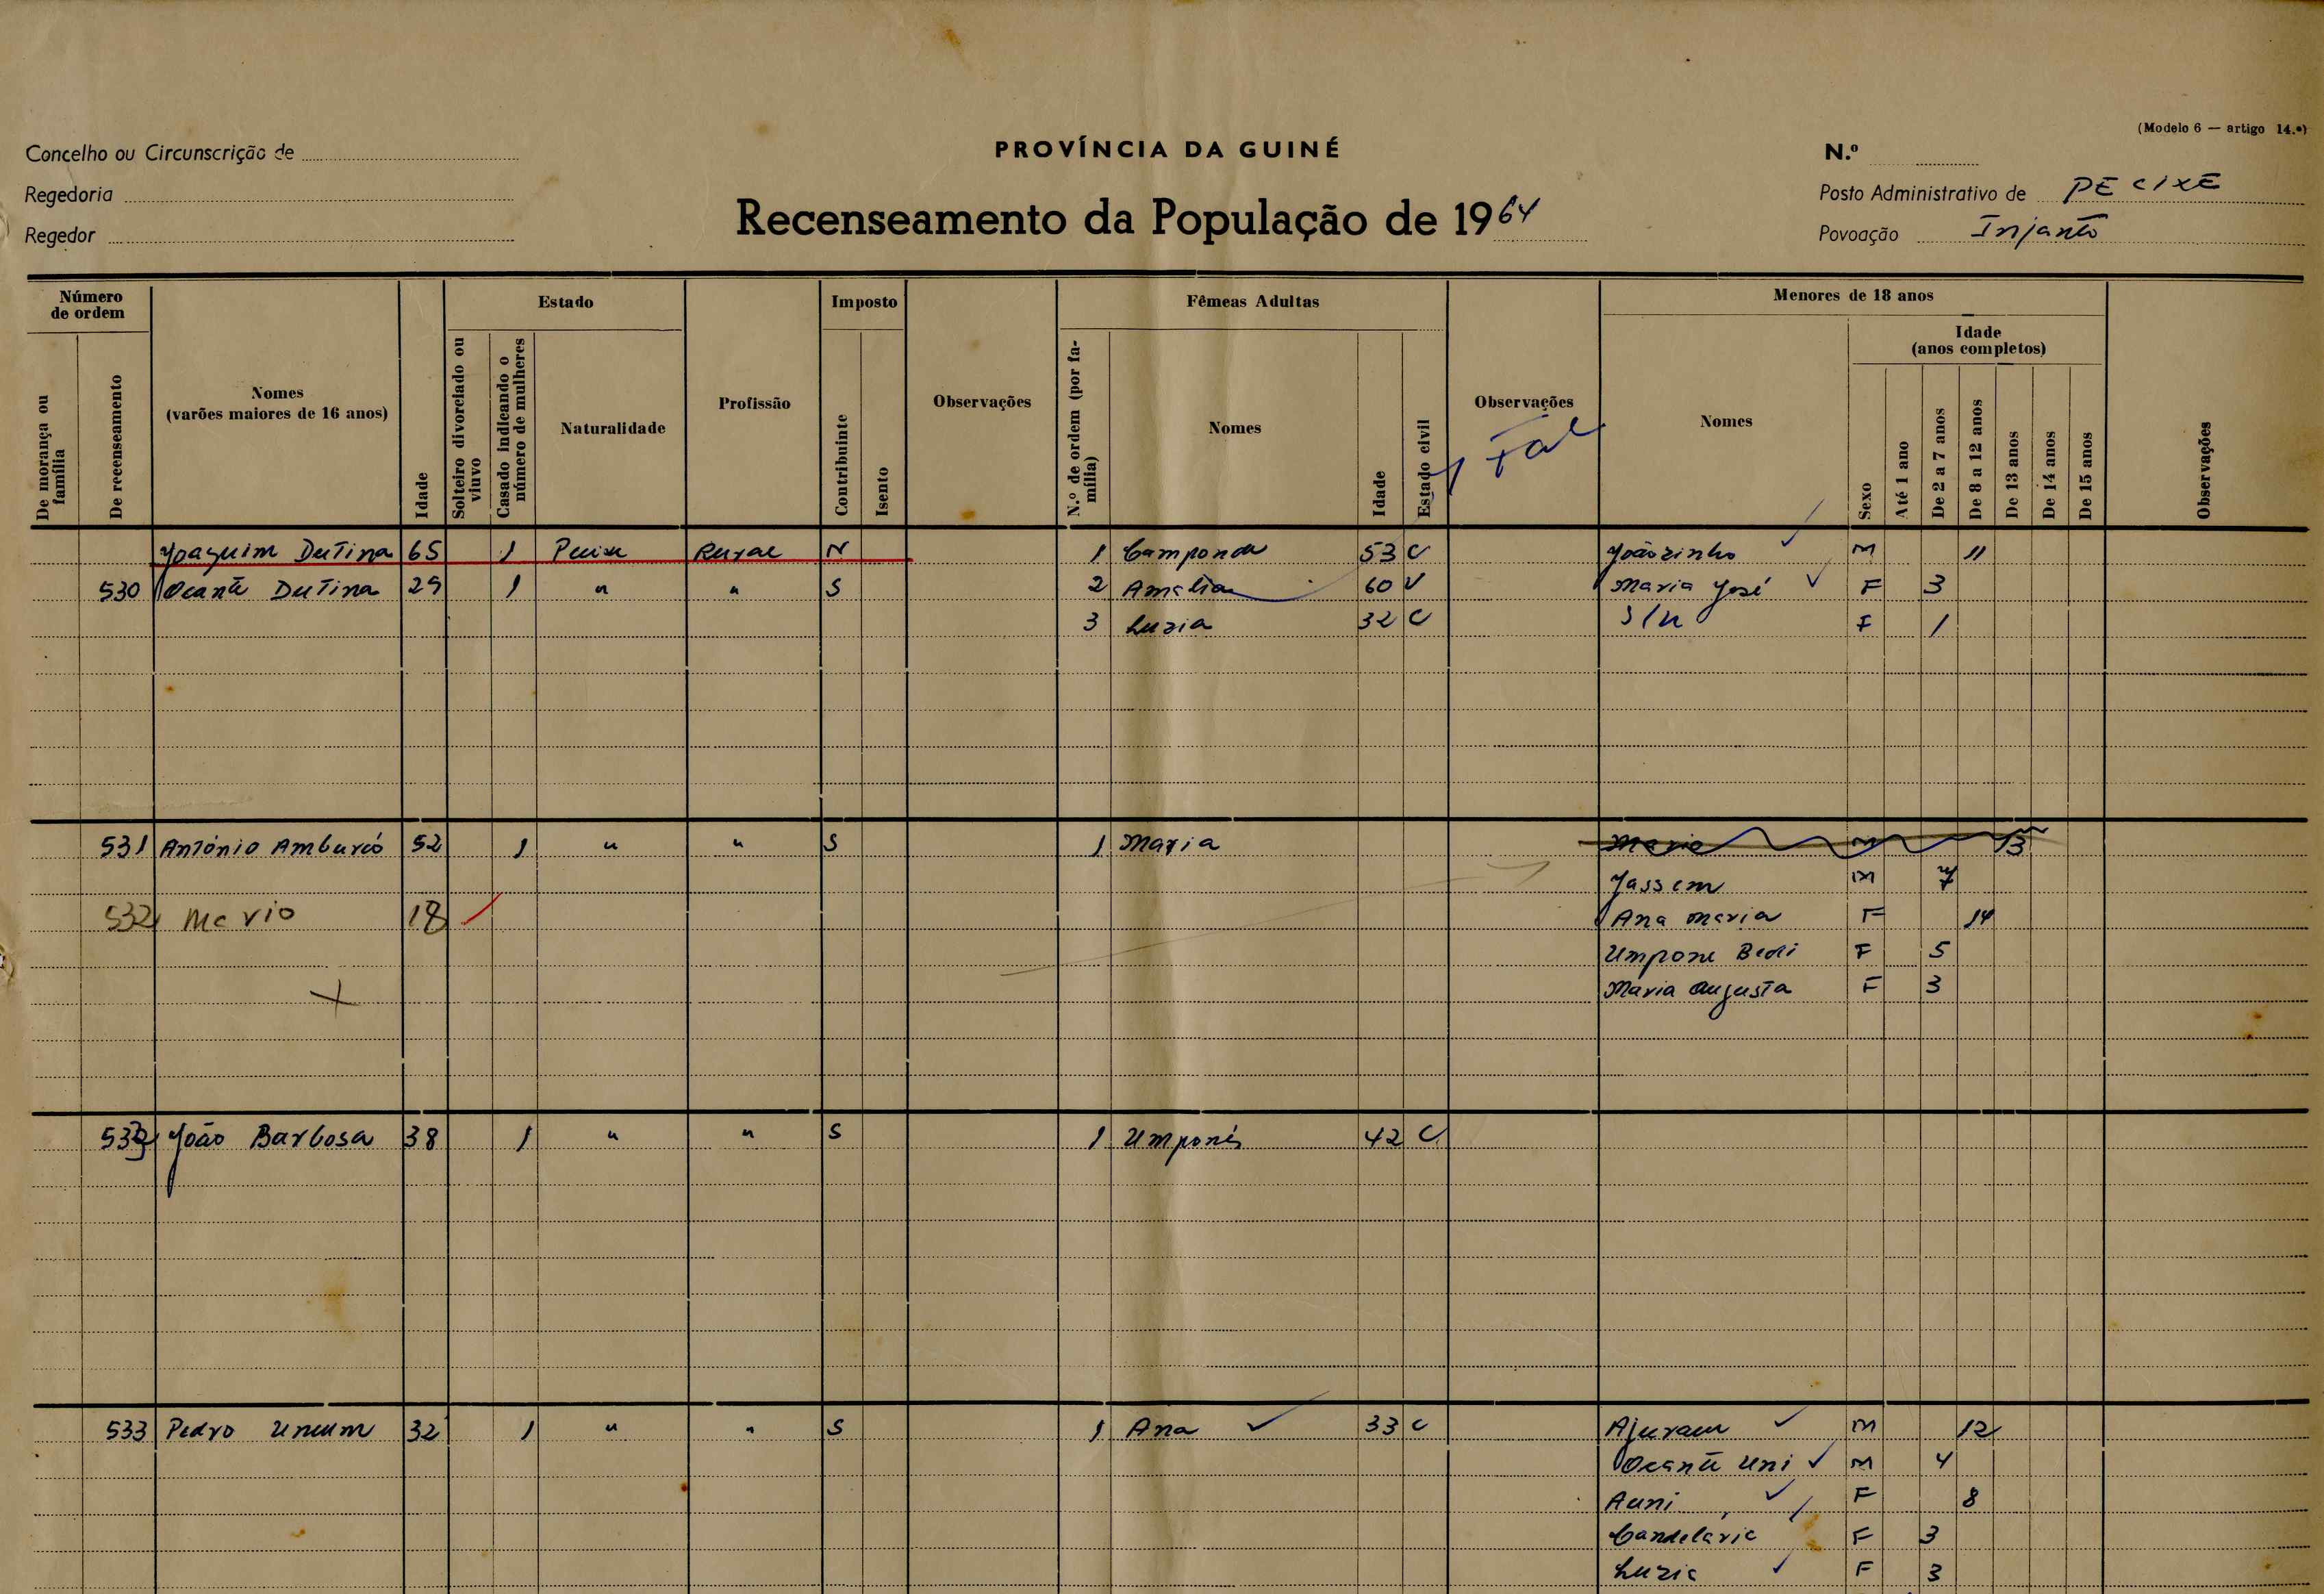 (Modelo 6 — artigo 14.º)
Concelho ou Circunscrição de
PROVÍNCIA DA GUINÉ
N.º
Regedoria
Recenseamento da População de 1964
Posto Administrativo de PECIXE
Regedor
Povoação
Número de ordem
Estado
Imposto
Fêmeas Adultas
Menores de 18 anos
Idade (anos completos)
De morança ou família
De recenseamento
Nomes (varões maiores de 16 anos)
Idade
Solteiro divorciado ou viuvo
Casado indicando o número de mulheres
Naturalidade
Profissão
Contribuinte
Isento
Observações
N.º de ordem (por família)
Nomes
Idade
Estado civil
Observações
Nomes
Sexo
Até 1 ano
De 2 a 7 anos
De 8 a 12 anos
De 13 anos
De 14 anos
De 15 anos
Observações
Joaquim DuTina 65 1 Rural N 1 53 C Joãozinho M 11
530 DuTina 29 1 " " S 2 Amelia 60 V Maria José F 3
3 Luzia 32 C S/n F 1
531 António Amburcó 52 1 " " S 1 Maria Mario M 13
Jassem M 7
532 Mario 18 Ana Maria F 14
F 5
Maria Augusta F 3
533 João Barbosa 38 1 " " S 1 42 C
533 Pedro 32 1 " " S 1 Ana 33 C M 12
Uni M 4
Auni F 8
Candelária F 3
Luzia F 3